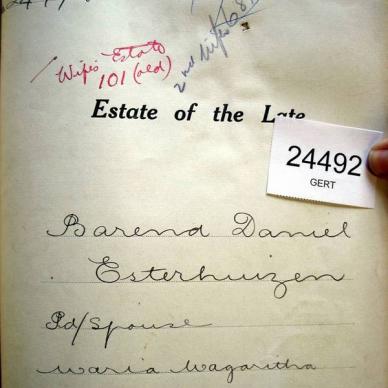 Wife's Estate
101 (old)
2nd wife's
Estate of the Late
24492
GERT
Barend Daniel
Esterhuizen
Pd/Spouse
Maria Magaritha